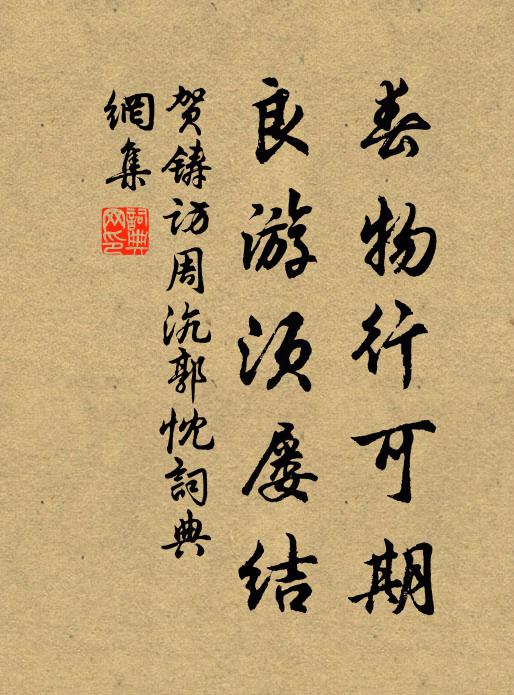 春物行可期
良游须屡结
贺铸访周沆郭忱詞典
網集
詞典网印